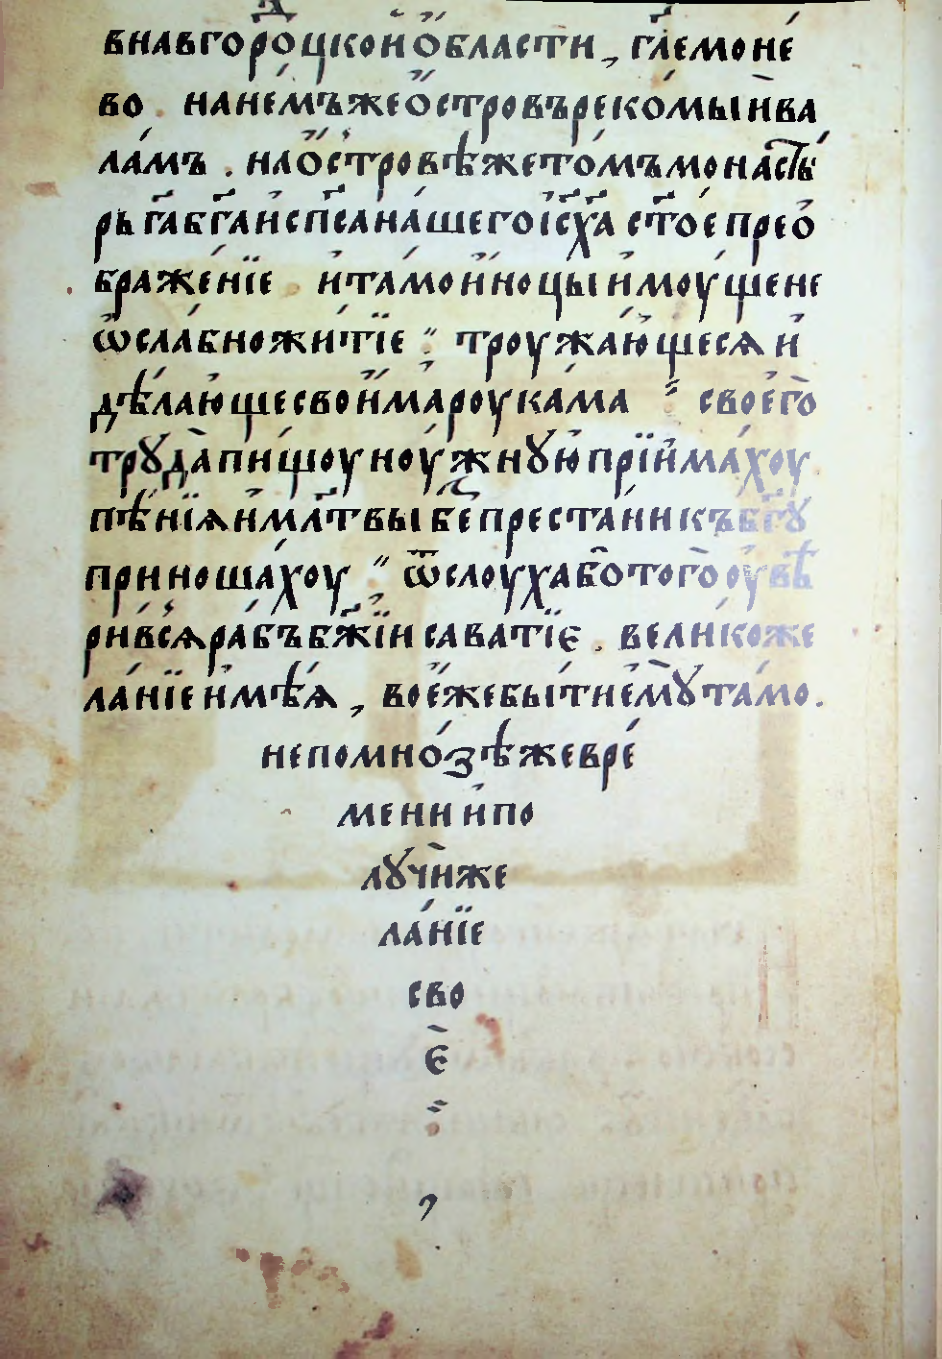 внавгоро́цкой ѻ҆бласти , гл҃емо не́
во . на не́мъже ѻ҆́стровъ реко́мый ва
ла́мъ . на ѻ҆́стровѣ же то́мъ монасты́
рь гд҃а бг҃а и҆ сп҃са на́шего і҆с҃ х҃а ст҃о́е прео҆
браже́нїе и҆ та́мо и҆́ноцы и҆моу́ще не
ѡ҆сла́бно жи́тїе " троужа́ю҆щеся и҆
дѣ́лаю҆ще свои҆́ма роука́ма " своего̀
трꙋда̀ пи́щоу ноу́жнꙋю҆ прїи҆ма́хоу
пѣ́нїѧ и҆ мл҃твы беꙁпреста́ни къ бг҃ꙋ
приноша́хоу " ѿ слоу́ха бо̑ того̀ оу҆вѣ
ри́всѧ рабъ бж҃їи саватїе . вели́ко же
ла́нїе и҆мѣ́ѧ , вое҆́же бы́ти е҆мꙋ̀ та́мо .
непомно́ѕѣ же вре́
мени и҆ по
лꙋчѝ же
ла́нїе
сво
є҆̀